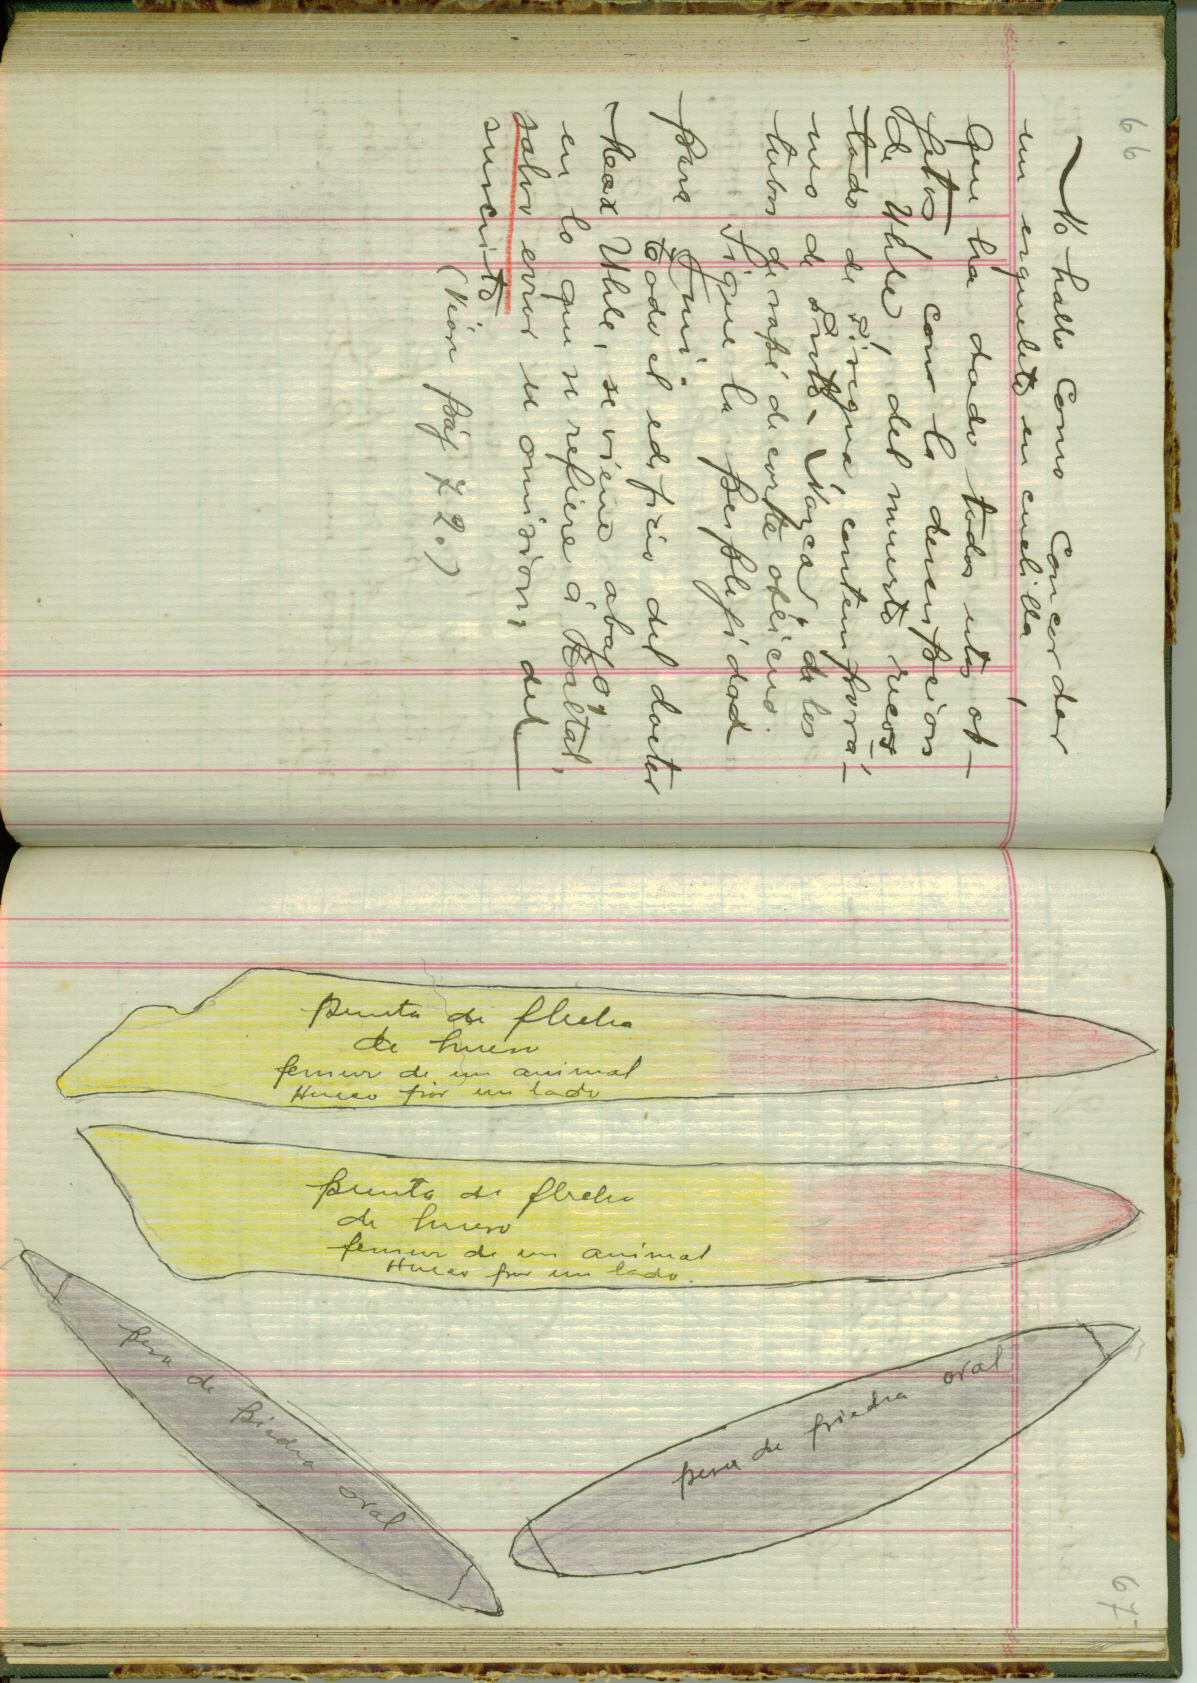 66
No hallo como concordar
un esqueleto en cuclilla,
que ha dado todos estos ob-
jetos con la descripcion
de Uhle, del muerto recos
tado de Pisagua contemporá-
neo de Proto-Nazca, de los
tubos de rapé de corte obsicuo.
Sigue la perplejidad
para mi.
Todo el edificio del doctor
Max Uhle, se viene abajo,
en lo que se refiere á Taltal,
salvo error u omision, del
suscrito
(Véase páj 72.)
punta de flecha
de hueso
femur de un animal
Hueco por un lado
punta de flecha
de hueso
femur de un animal
Hueco por un lado.
pesa de piedra oval
pesa de piedra oval
67